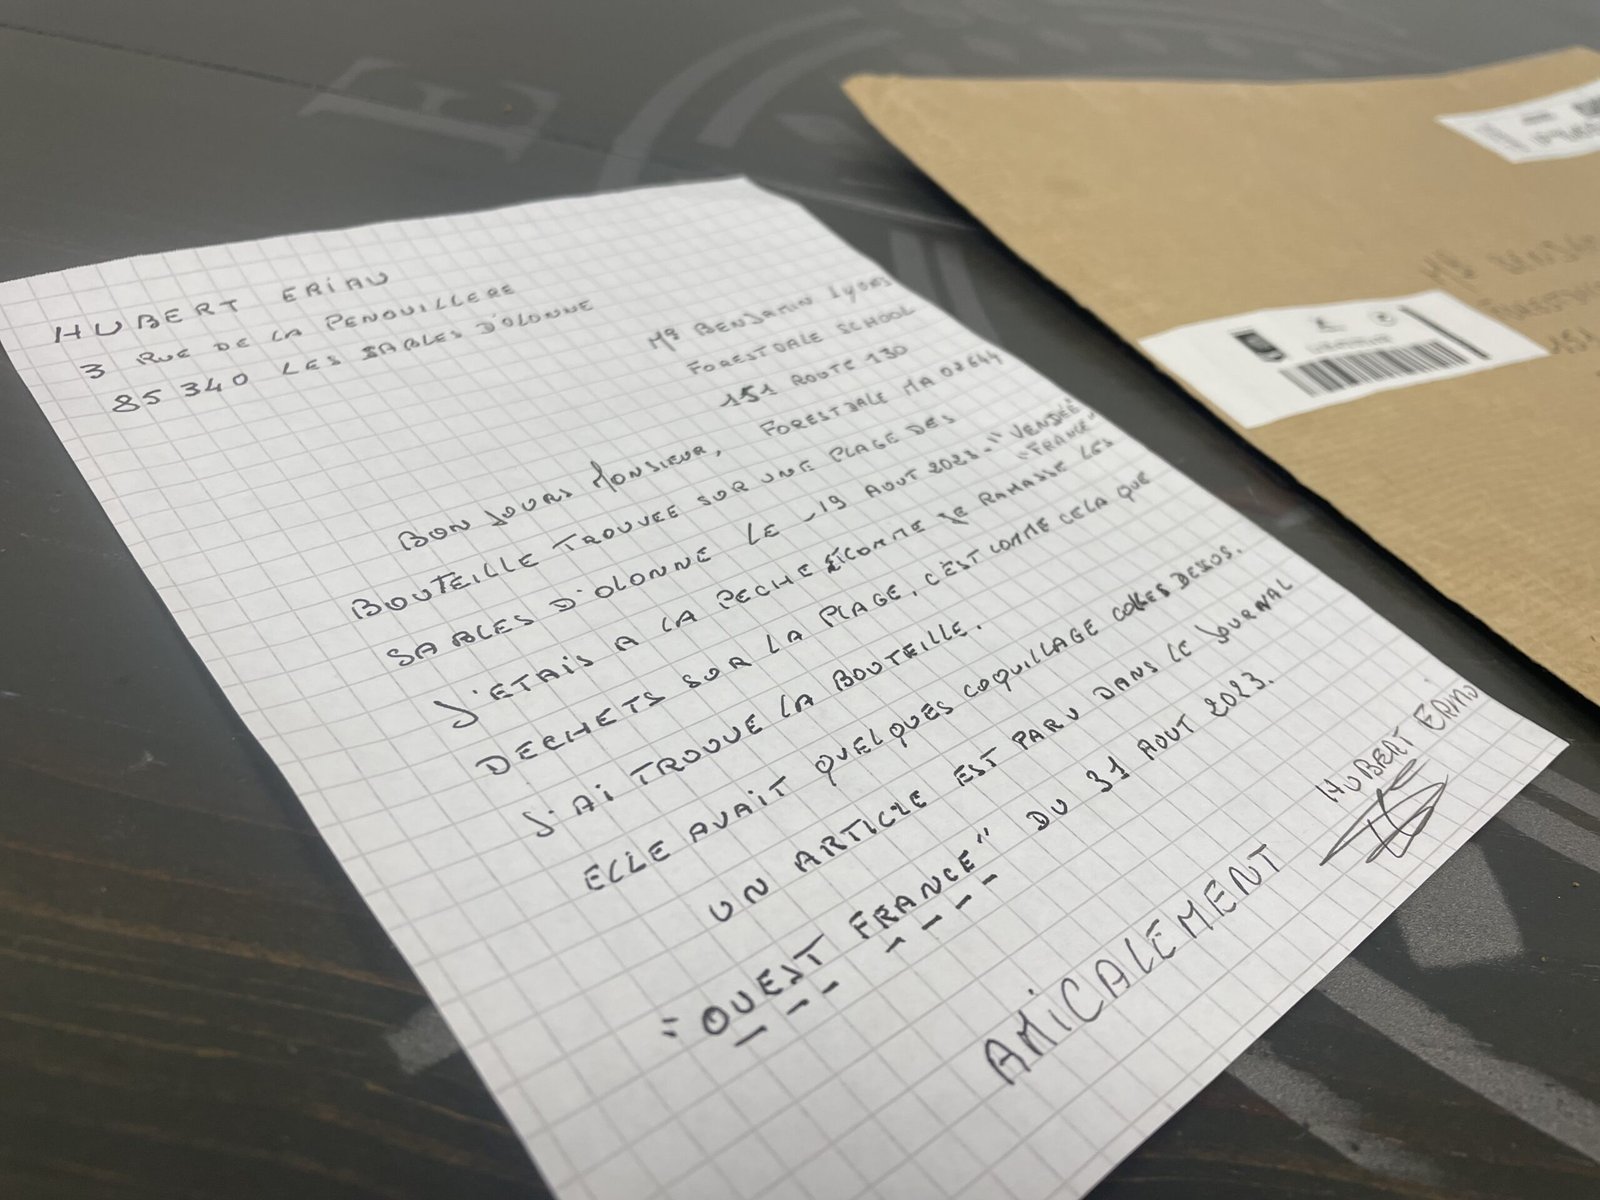 HUBERT ERIAU
3 RUE DE LA PENOUILLERE
85340 LES SABLES D'OLONNE
MR BENJAMIN Lyons
FORESTDALE SCHOOL
151 ROUTE 130
FORESTDALE MA 02644
BON JOURS MONSIEUR,
BOUTEILLE TROUVEE SUR UNE PLAGE DES
SABLES D'OLONNE LE -19 AOUT 2023- "VENDÉE
"FRANCE"
J'ETAIS A LA PECHE ET COMME JE RAMASSE LES
DECHETS SUR LA PLAGE, C'EST COMME CELA QUE
J'AI TROUVE LA BOUTEILLE.
ELLE AVAIT QUELQUES COQUILLAGE COLLES DESSUS.
UN ARTICLE EST PARU DANS LE JOURNAL
"OUEST FRANCE" DU 31 AOUT 2023.
AMICALEMENT
HUBERT ERIAU
MR
151